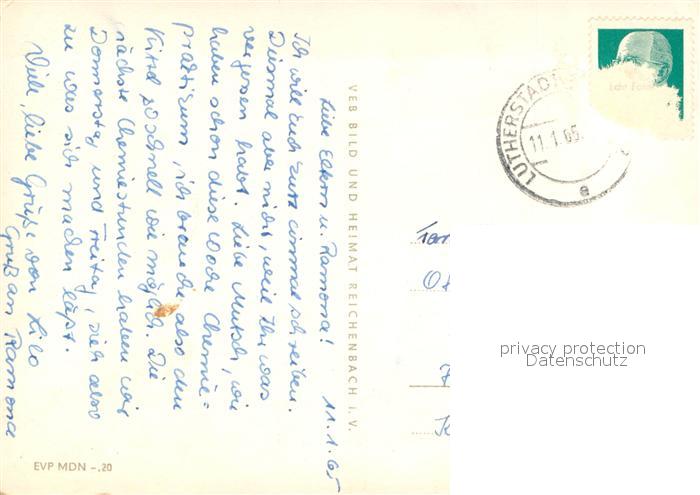 Liebe Eltern u. Ramona! 11.1.65
Ich will Euch kurz einmal schreiben.
Diesmal aber nicht, weil Ihr was
vergessen habt. Liebe Mutsch, wir
haben schon diese Woche Chemie-
praktikum, ich brauche also den
Kittel so schnell wie möglich. Die
nächste Chemiestunden haben wir
Donnerstag und Freitag, sieh also
zu was sich machen läßt.
Viele, liebe Grüße von Lilo
Gruß an Ramona
VEB BILD UND HEIMAT REICHENBACH i. V.
EVP MDN -,20
LUTHERSTADT
11.1.65.
e
privacy protection
Datenschutz